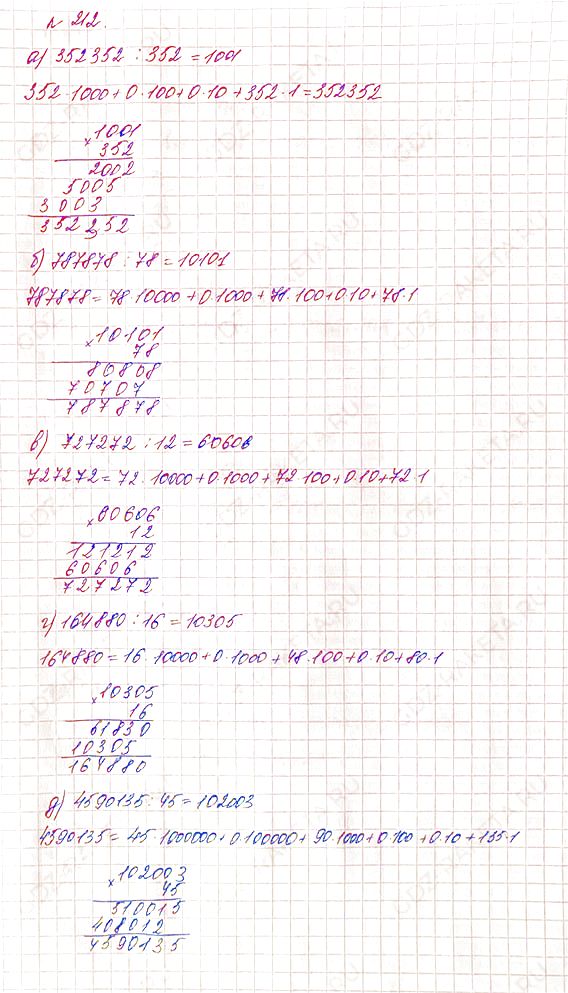 № 212.
а) 352352 : 352 = 1001
352 · 1000 + 0 · 100 + 0 · 10 + 352 · 1 = 352352
× 1001
352
2002
5005
3003
352252
б) 787878 : 78 = 10101
787878 = 78 · 10000 + 0 · 1000 + 78 · 100 + 0 · 10 + 78 · 1
× 10101
78
80808
70707
787878
в) 727272 : 12 = 60606
727272 = 72 · 10000 + 0 · 1000 + 72 · 100 + 0 · 10 + 72 · 1
× 60606
12
121212
60606
727272
г) 164880 : 16 = 10305
164880 = 16 · 10000 + 0 · 1000 + 48 · 100 + 0 · 10 + 80 · 1
× 10305
16
61830
10305
164880
д) 4590135 : 45 = 102003
4590135 = 45 · 1000000 + 0 · 100000 + 90 · 1000 + 0 · 100 + 0 · 10 + 135 · 1
× 102003
45
510015
408012
4590135